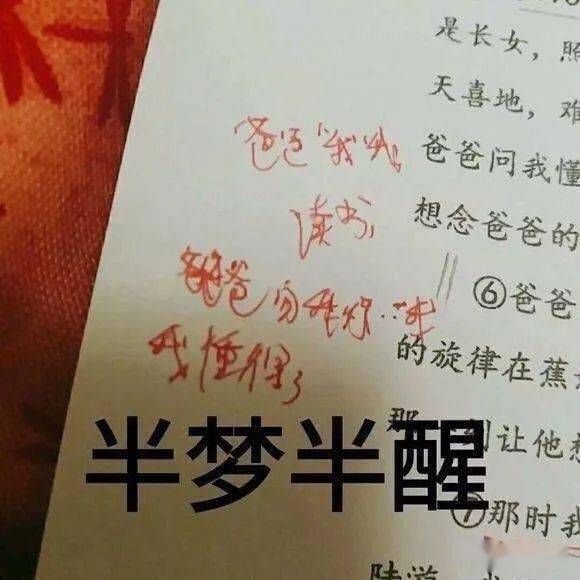 是长女，照
天喜地，难
爸爸问我懂
想念爸爸的
⑥爸爸
的旋律在蕉
那一刻让他想
⑦那时我
陆道
爸爸
读书
爸爸
我懂得了
半梦半醒